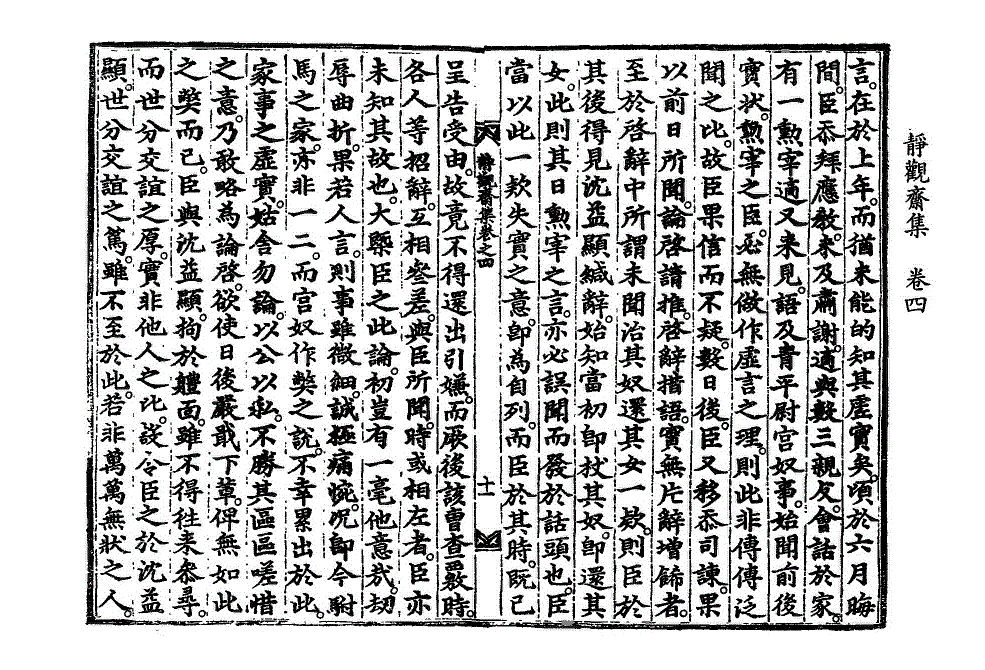 靜觀齋集 卷四
言。在於上年。而猶未能的知其虛實矣。頃於六月晦
間。臣忝拜應教。來及肅謝。適與數三親友。會話於家。
有一勳宰適又來見。語及青平尉宮奴事。始聞前後
實狀。勳宰之臣。必無做作虛言之理。則此非傳傳泛
聞之比。故臣果信而不疑。數日後。臣又移忝司諫。果
以前日所聞。論啓請推。啓辭措語。實無片辭增餙者。
至於啓辭中所謂未聞治其奴還其女一欵。則臣於
其後得見沈益顯緘辭。始知當初卽杖其奴。卽還其
女。此則其日勳宰之言。亦必誤聞而發於話頭也。臣
當以此一欵失實之意。卽爲自列。而臣於其時。旣已
靜觀齋集卷之四
十一
呈告受由。故竟不得還出引嫌。而厥後該曹查覈時。
各人等招辭。互相參差。與臣所聞。時或相左者。臣亦
未知其故也。大槩臣之此論。初豈有一毫他意哉。刼
辱曲折。果若人言。則事雖微細。誠極痛惋。况卽今駙
馬之家。亦非一二。而宮奴作獘之說。不幸累出於此。
家事之虛實。姑舍勿論。以公以私。不勝其區區嗟惜
之意。乃敢略爲論啓。欲使日後嚴戢下輩。俾無如此
之獘而已。臣與沈益顯。拘於體面。雖不得往來參尋。
而世分交誼之厚。實非他人之比。設令臣之於沈益
顯。世分交誼之篤。雖不至於此。若非萬萬無狀之人。